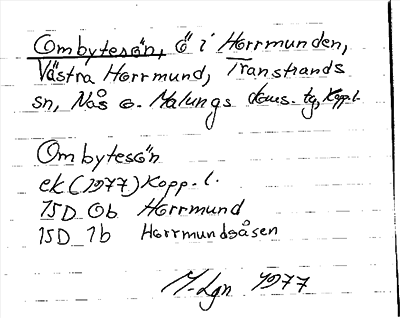 Ombytesön, ö i Horrmunden,
Västra Horrmund, Transtrands
sn, Nås o. Malungs doms. tg, Kopp.l.
Ombytesön
ek (1977) Kopp. l.
15D 0b Horrmund
15D 1b Horrmundsåsen
M-Lgn 1977